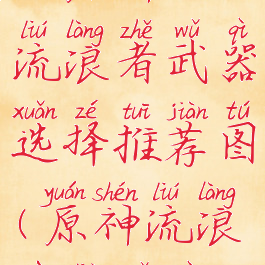 liú làng zhě wǔ qì
流浪者武器
xuǎn zé tuī jiàn tú
选择推荐图
yuán shén liú làng
(原神流浪